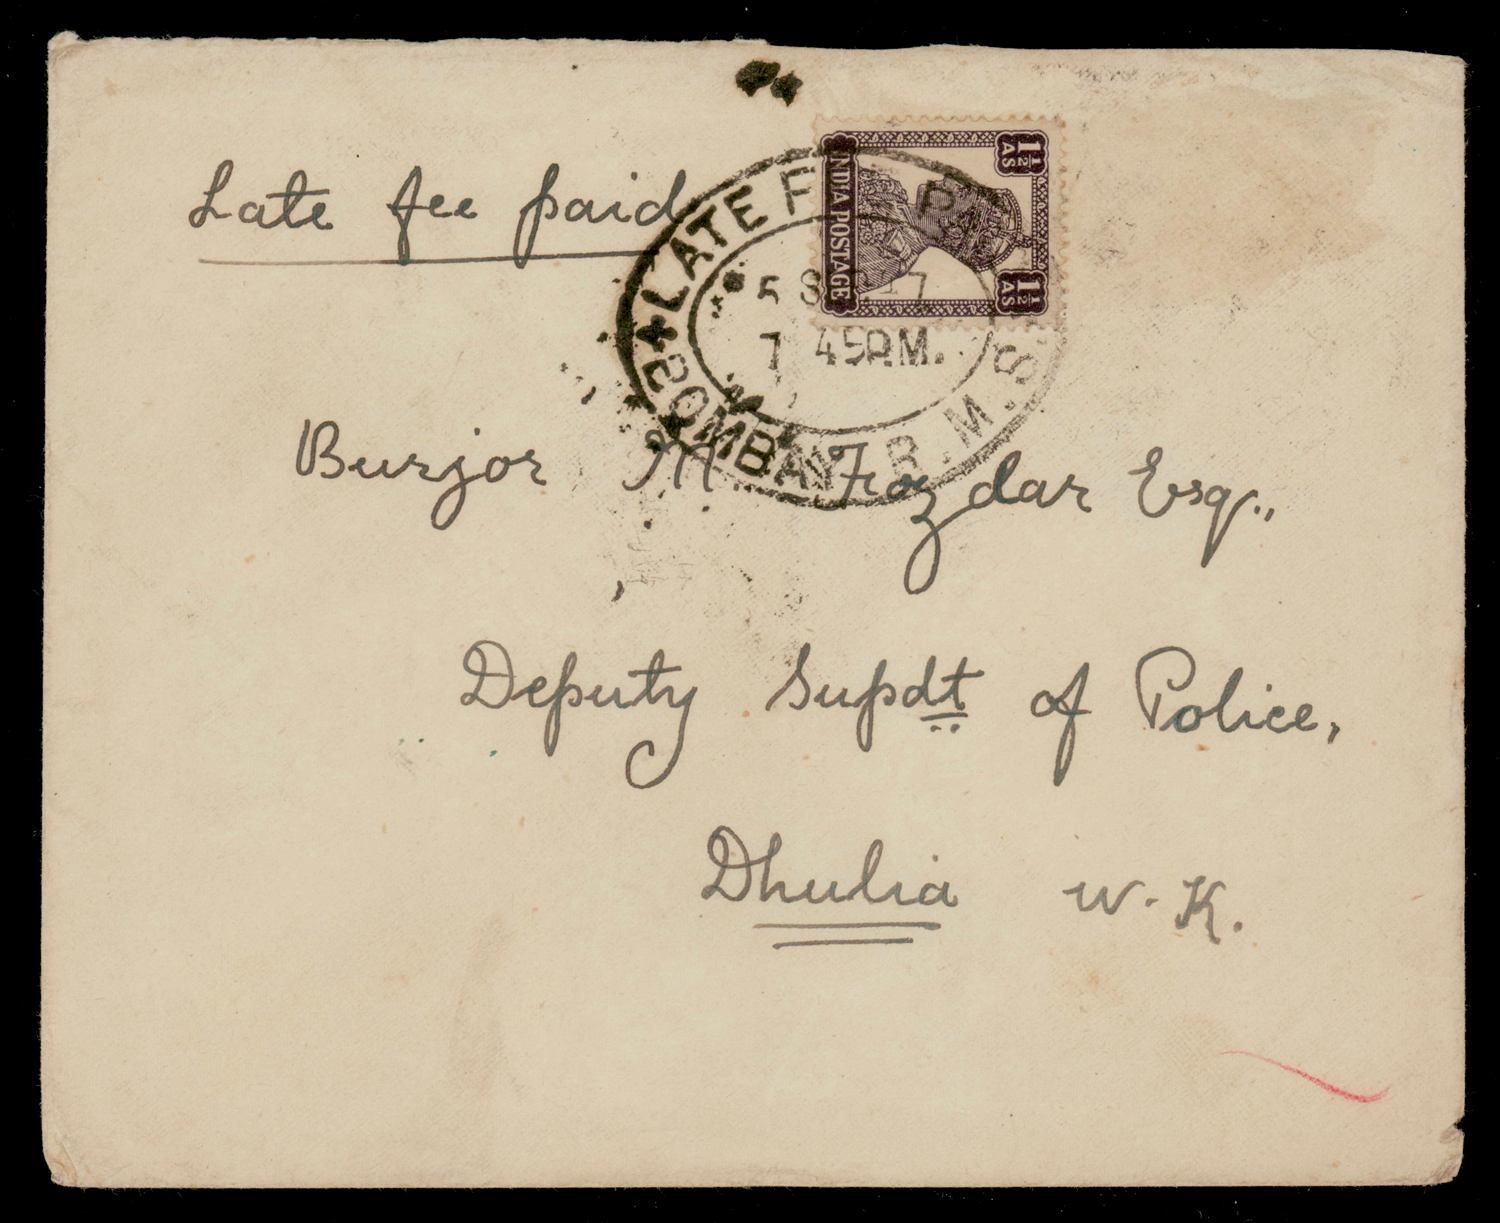 Late fee paid
LATE F PA
5 SEP 47
7 45 P.M.
BOMBAY R.M.S.
1½ AS
INDIA POSTAGE
1½ AS
Burjor M Fozdar Esq.,
Deputy Supdt of Police,
Dhulia W.K.